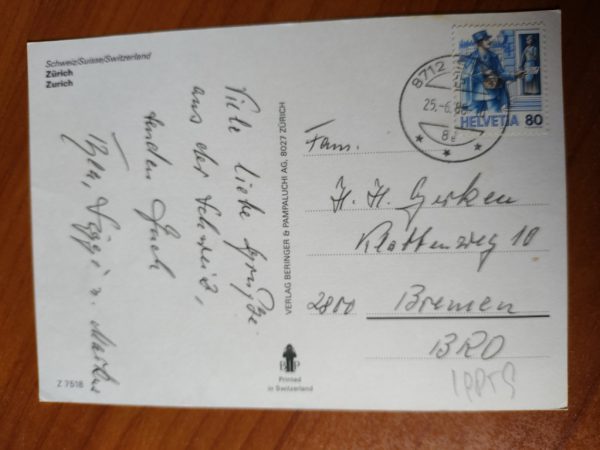 Schweiz/Suisse/Switzerland
Zürich
Zurich
Viele liebe Grüße
aus der Schweiz,
senden Euch
u. Markus
VERLAG BERINGER & PAMPALUCHI AG, 8027 ZÜRICH
B P
Printed
in Switzerland
Z 7518
8712
25.-6.
HELVETIA 80
Fam.
H. H. Gerken
Klattenweg 10
2800 Bremen
BRD